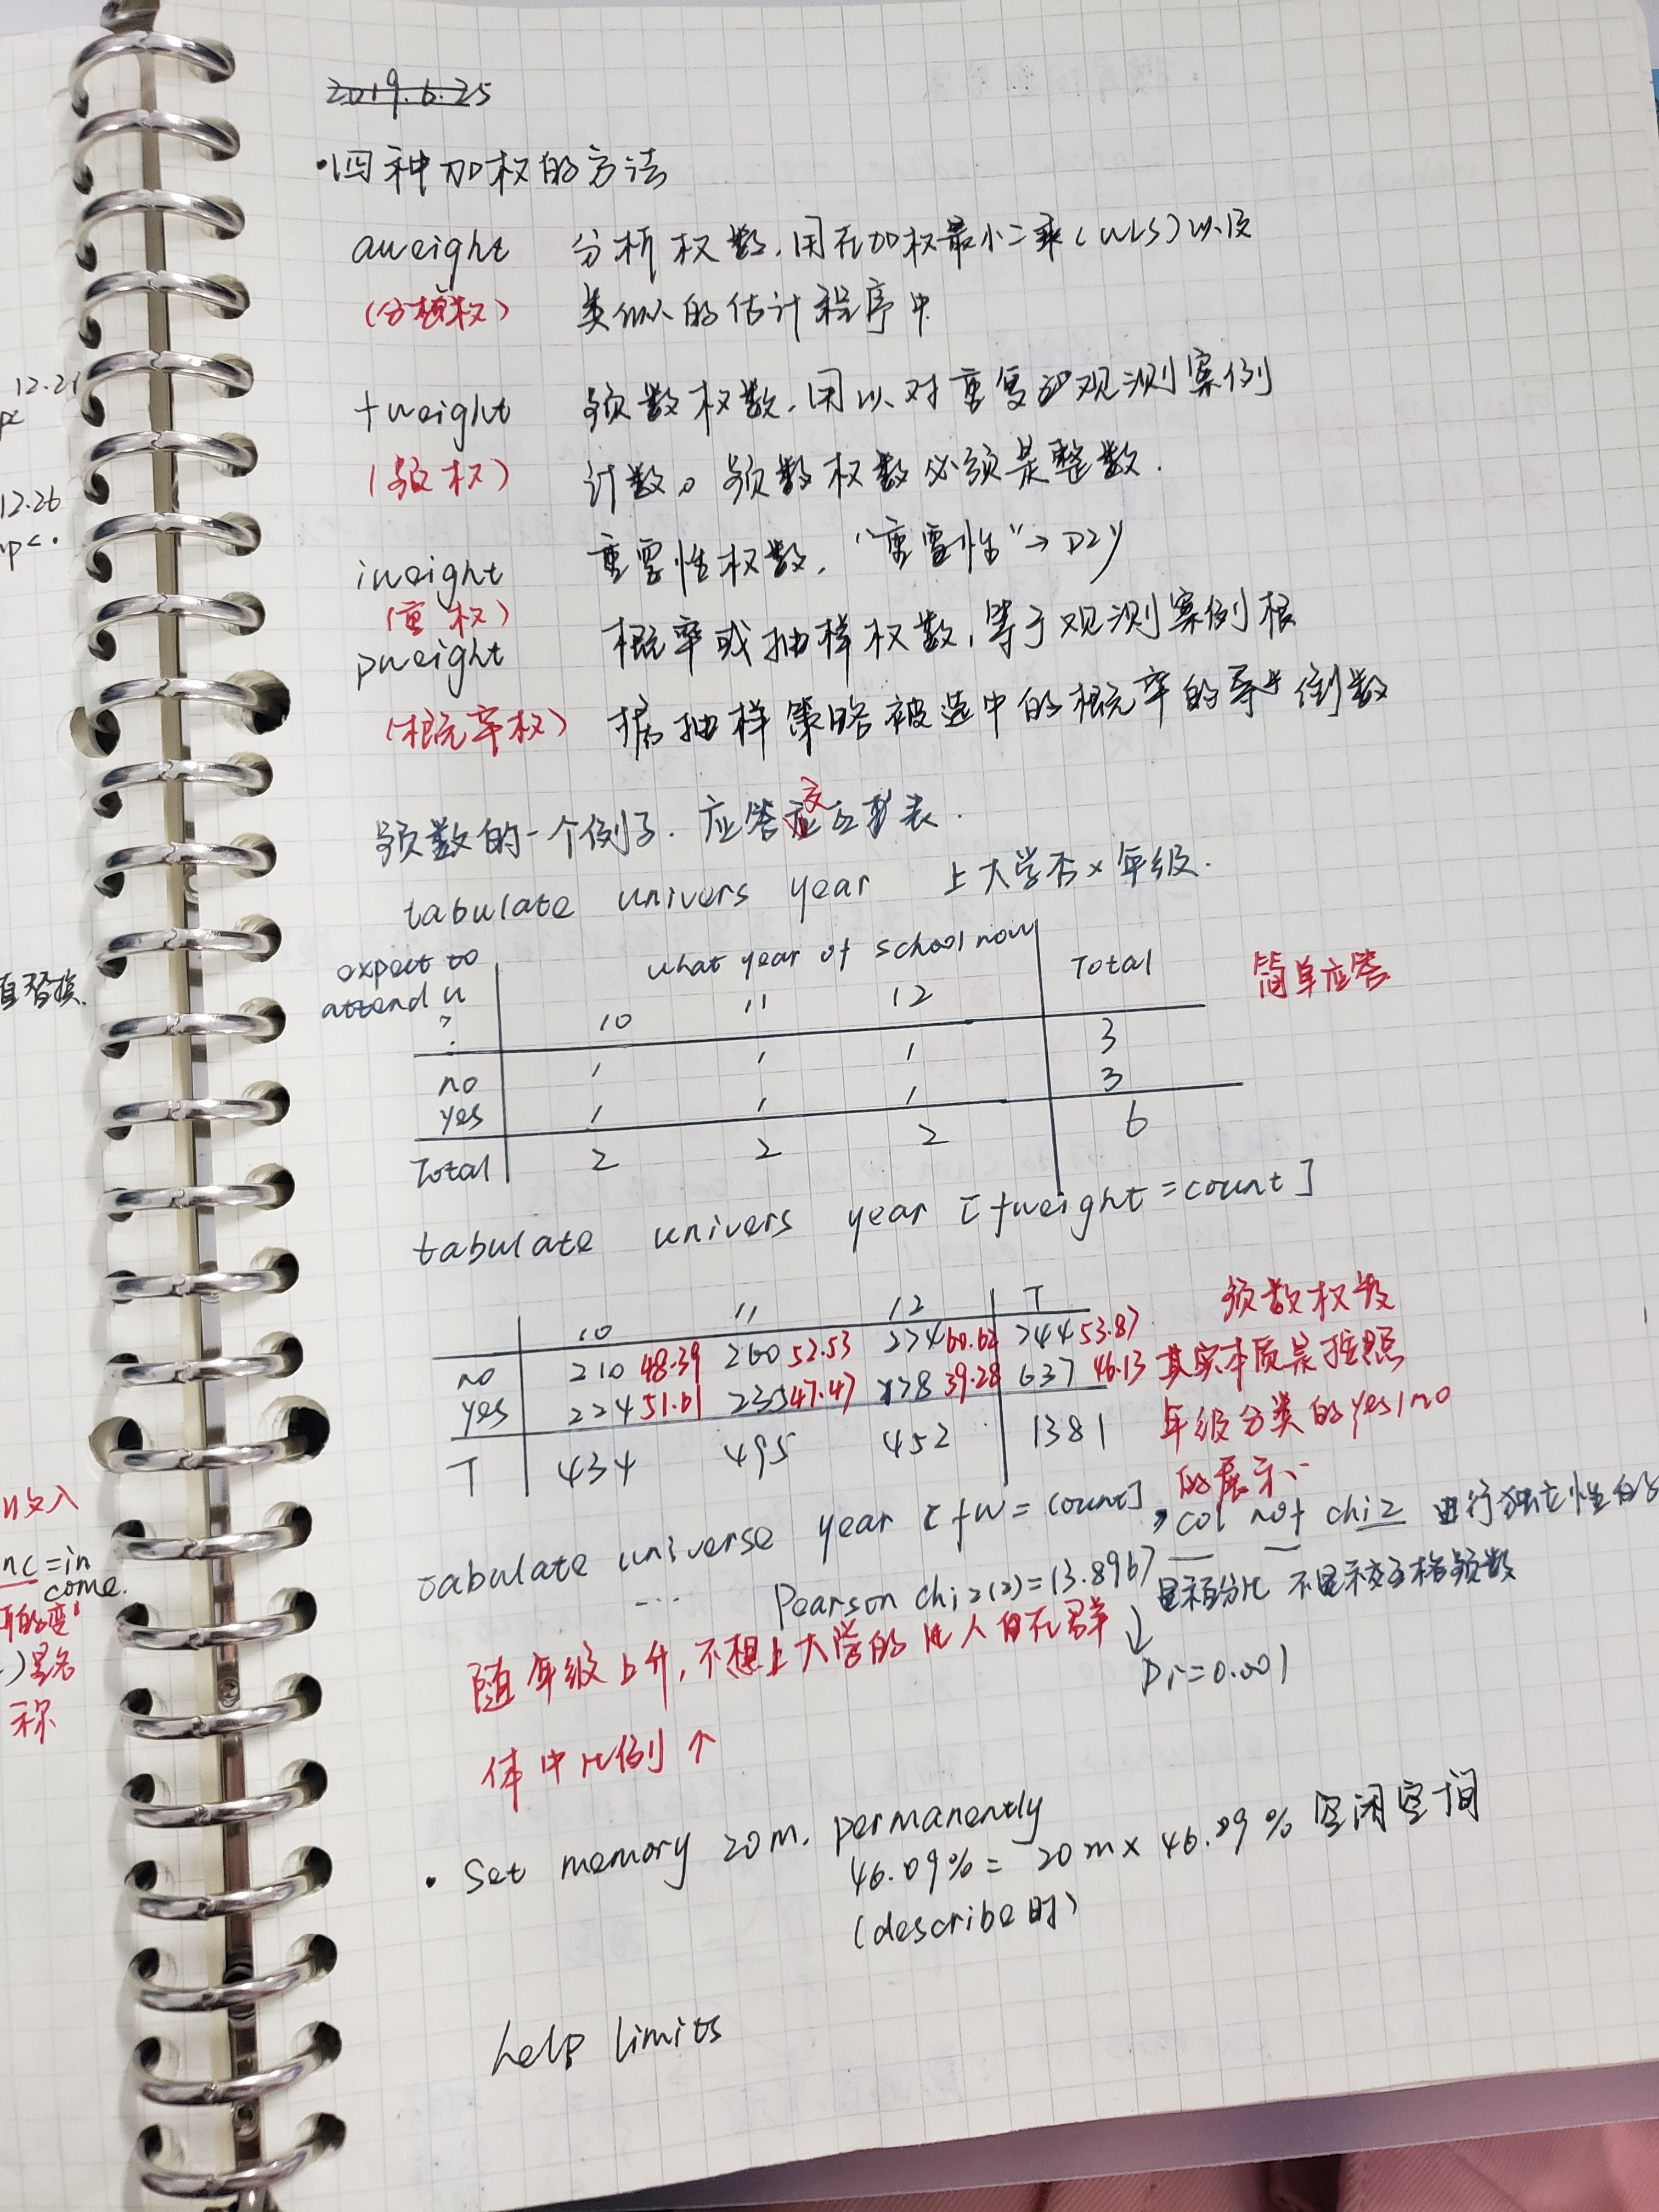 2019.6.25
·四种加权的方法
aweight 分析权数,用在加权最小二乘(WLS)以及
(分析权) 类似的估计程序中
fweight 频数权数,用以对重复的观测案例
(频权) 计数。频数权数必须是整数.
iweight 重要性权数,“重要性”→DIY
(重权)
pweight 概率或抽样权数,等于观测案例根
(概率权) 据抽样策略被选中的概率的导步倒数
频数的一个例子. 应答交互表.
tabulate univers year 上大学否×年级.
expect to what year of school now Total 简单应答
attend u
? 10 11 12
no 1 1 1 3
yes 1 1 1 3
Total 2 2 2 6
tabulate univers year [fweight=count]
10 11 12 T 频数权数
no 210 48.39 260 52.53 274 60.62 744 53.87 其实本质是按照
yes 224 51.61 235 47.47 178 39.28 637 46.13 年级分类的yes/no
T 434 495 452 1381 的展示
tabulate universe year [fw=count], col nof chi2 进行独立性的
... Pearson chi2(2)=13.8967 显示百分比 不显示交互格频数
↓
Pr=0.001
随年级上升,不想上大学的比人自在群
体中比例↑
· Set memory 20m, permanently
46.09%= 20m×46.09% 空闲空间
(describe时)
help limits
12.21
12.26
直替换.
收入
nc=in
come.
的变
)是名
称